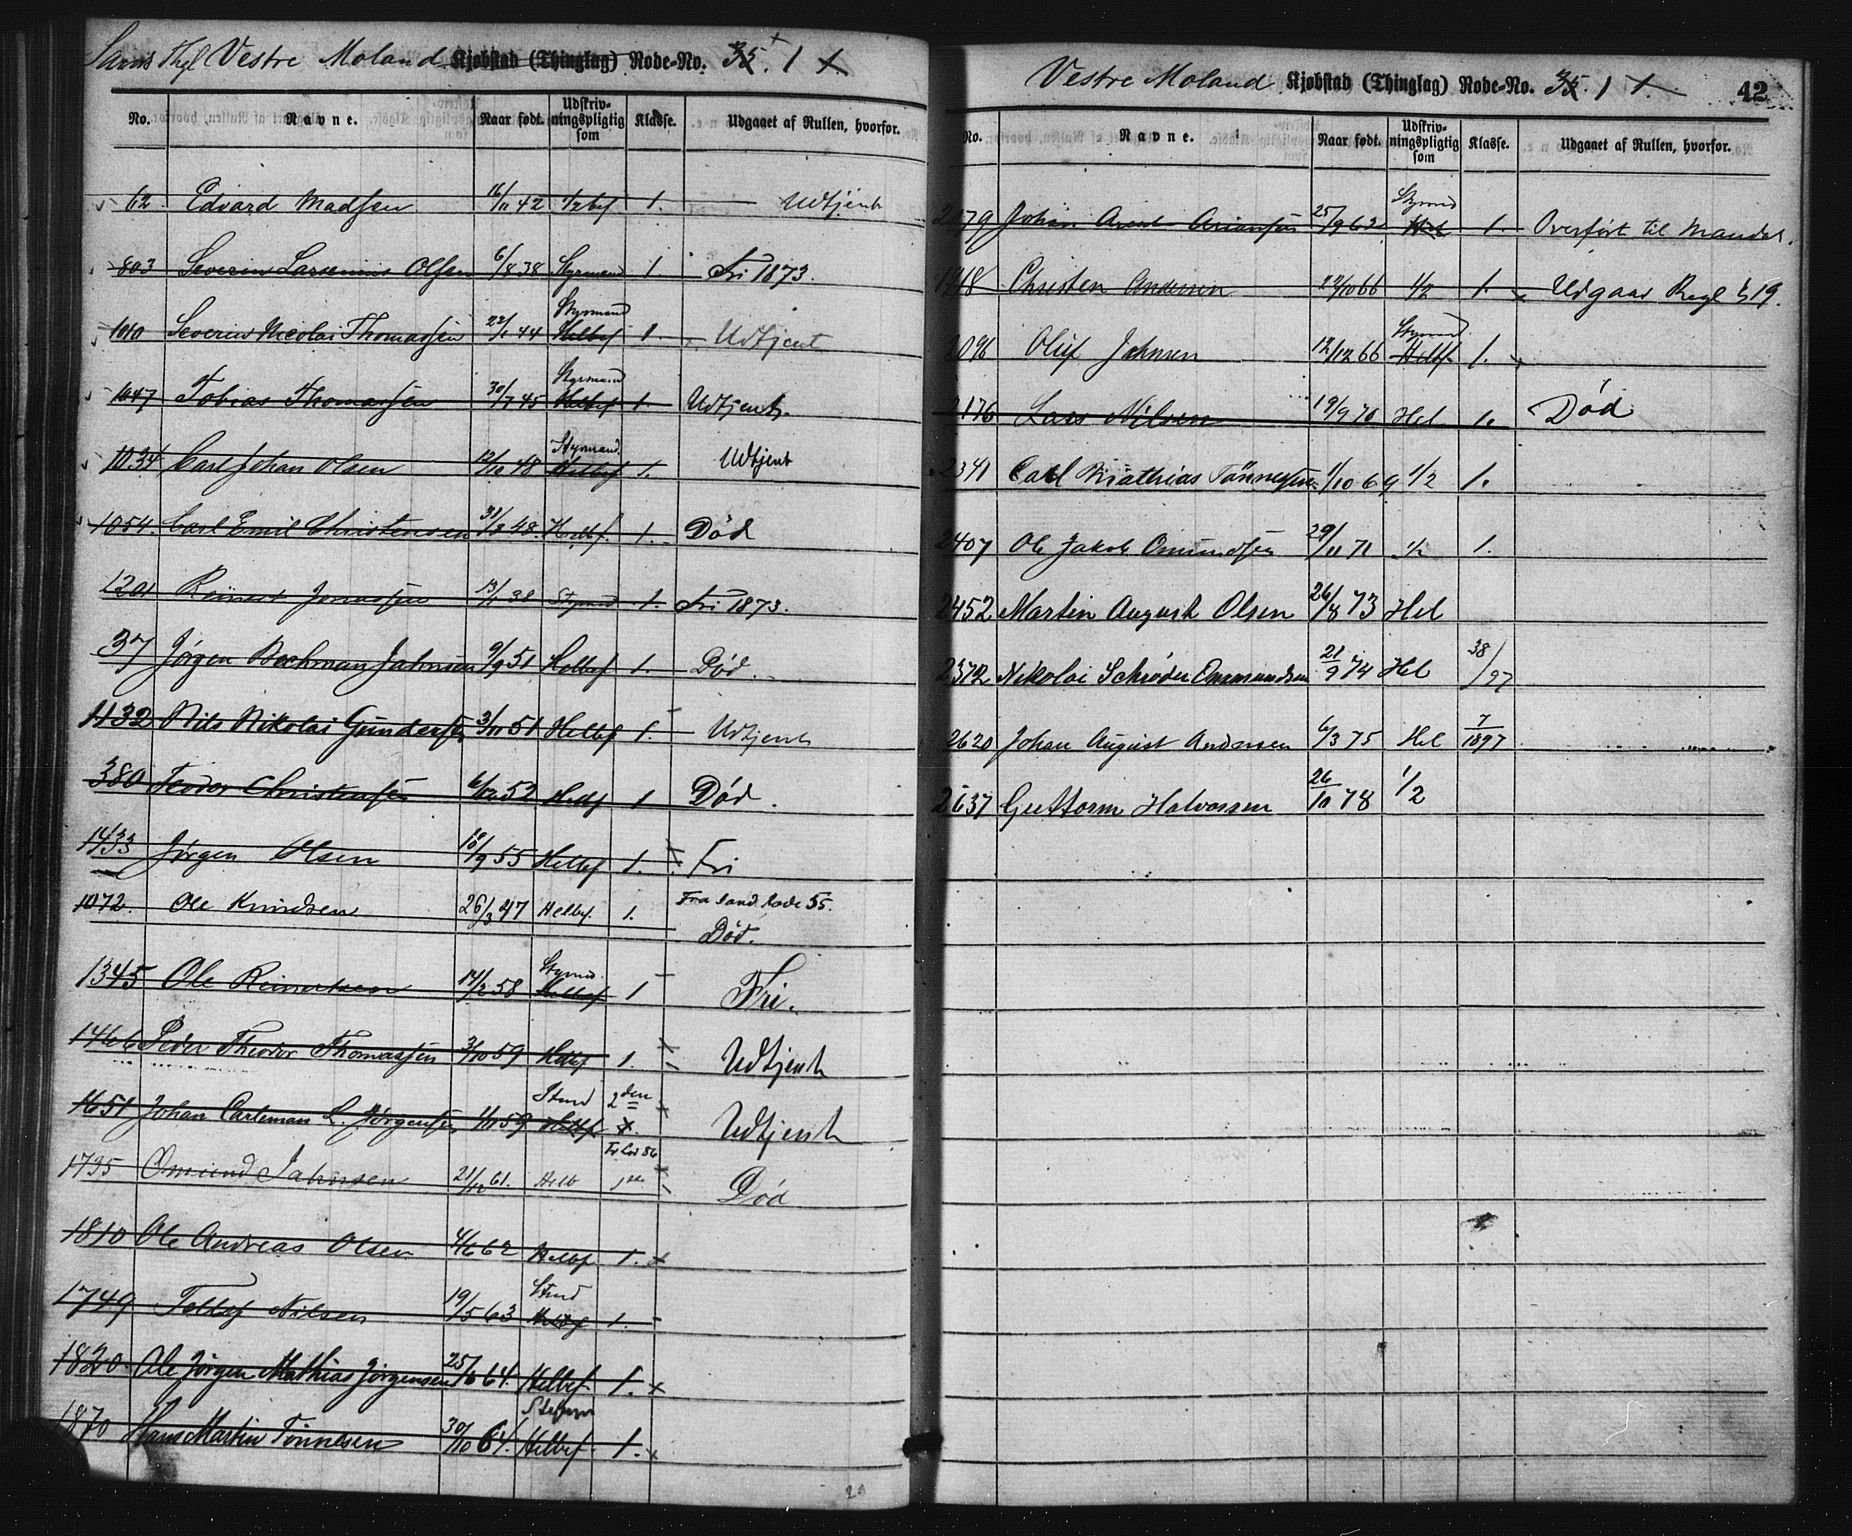 Vestre Moland Kjøbstad (Thinglag) Rode-No. 35. 1
No. Navne. Naar født. Udskrivningspligtig som Klasse. Udgaaet af Rullen, hvorfor.
62 Edvard Madsen 16/11 42 1/2 bef. 1. Udtjent
803 Severin Olsen 6/8 38 Styrmand 1. Fri 1873.
1010 Severin Nicolai Thomassen 22/1 44 Styrmand Helbef 1 Udtjent
1047 Tobias Thomassen 30/7 45 Styrmand Helbef 1. Udtjent.
1034 Carl Johan Olsen 12/10 48 Styrmand Helbef 1. Udtjent
1054. Carl Emil Christensen 31/3 48. Helbf. 1. Død
1201 Reinert 38 Styrmd 1. Fri 1873.
37 Jørgen Bechman Jahnsen 9/9 51 Helbef 1. Død.
1132 Nils Nikolai Gundersen 3/11 51 Helbef 1. Udtjent
380 Teodor Christensen 6/12 52 Helbf 1 Død.
1433 Jørgen Olsen 18/9 55 Helbef 1. Fri
1072. Ole Knudsen 26/3 47 Helbf. 1. Fra Sand. Rode 55.
Død.
1345 Ole Reinertsen 14/2 58 Styrmd. Helbef 1 Fri.
1466 Peder Theodor Thomassen 3/10 59 Helbf 1. Udtjent
1651 Johan Carleman L. Jørgensen 1/11 59 Stmd Helbf 2den Udtjent
1795 Omund Jahnsen 21/12 61. Helb 1ste Død
1810 Ole Andreas Olsen 4/6 62 Helbf. 1.
1749 Tellef Nilsen 19/5 63 Stmd Helbef 1.
1820. Ole Jørgen Mathias Jørgensen 25/6 64. Helbef. 1.
1870 Hans Martin Tönnesen 30/10 64. Helbef. 1.
29
Vestre Moland Kjøbstad (Thinglag) Rode-No. 35. 1
42
No. Navne. Naar født. Udskrivningspligtig som Klasse. Udgaaet af Rullen, hvorfor.
Johan Arent 25/9 62 Styrmd Hel 1. Overført til Mandal.
1718 Christen Andersen 22/10 66 1/2 1. Udgaar Regl § 19.
Oluf Jahnsen 12/12 66 Styrmd. Helbf 1.
2176 Lars Nilsen 19/9 70 Hel 1. Død
2341 Carl Mathias Tönnesen 1/10 69 1/2 1.
2407 Ole Jakob Omundsen 29/11 71 1/2 1.
2452 Martin August Olsen 26/8 73 Hel
2372 Nikolai Schrøder Ommundsen 21/9 74 Hel 38/97
2620 Johan August Andersen 6/3 75 Hel 7/1897
2637 Guttorm Halvorsen 26/10 78 1/2